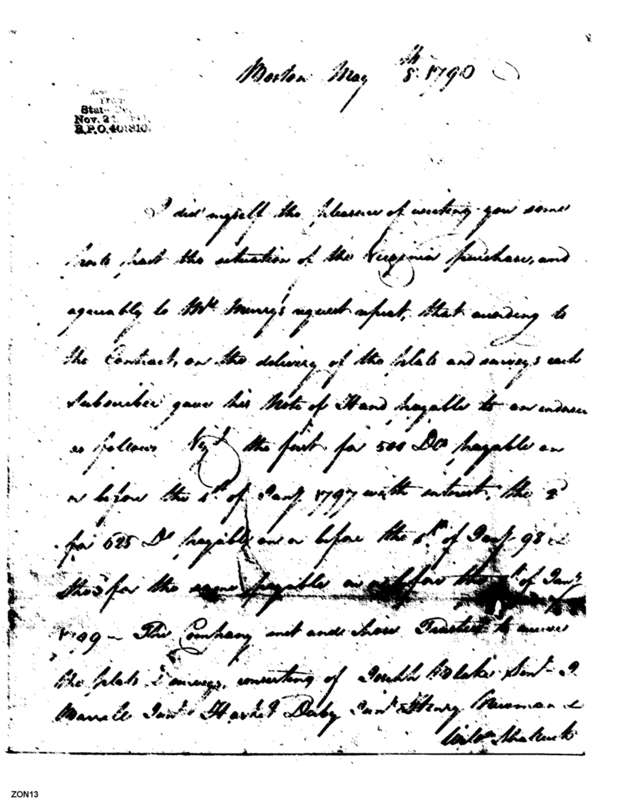 Boston May 8th 1790
State
Nov. 2
B.P.O. 401810
I did myself the pleasure of writing you some
posts past the situation of the Virginia purchase, and
agreeably to Mr. Murry's request repeat, that according to
the Contract, on the delivery of the plats and surveys each
Subscriber gave his Note of Hand payable to an indorser
as follows Vizt the first for 500 Ds payable on
or before the 1st of Jany 1797 with interest, the 2d
for 625 Ds payable on or before the 1st of Jany 98
the 3 for the same payable on or before the 1st of Jany
1799 – The Company met and chose Trustees to receive
the plats & surveys, consisting of Joseph Blake Senr J.
Marvell Junr Hasket Derby Junr Henry &
Willm
ZON13